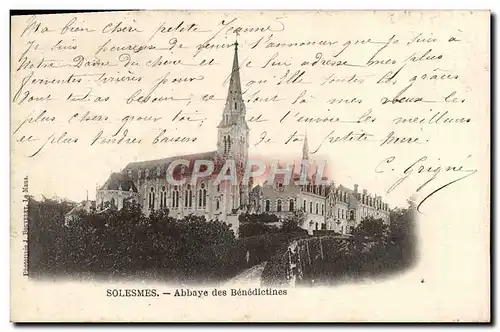 Ma bien chère petite Jeanne
Je suis heureuse de venir t'annoncer que je suis à
Notre Dame du chêne et je lui adresse mes plus
ferventes prières pour qu'Elle toutes les grâces
dont tu as besoin, ce sont là mes vœux les
plus chers pour toi, et t'envoie les meilleurs
et plus tendres baisers de ta petite Mère.
C. Grigné
CPAPHIL.COM
Phototypie J. Bouveret, Le Mans.
SOLESMES. — Abbaye des Bénédictines